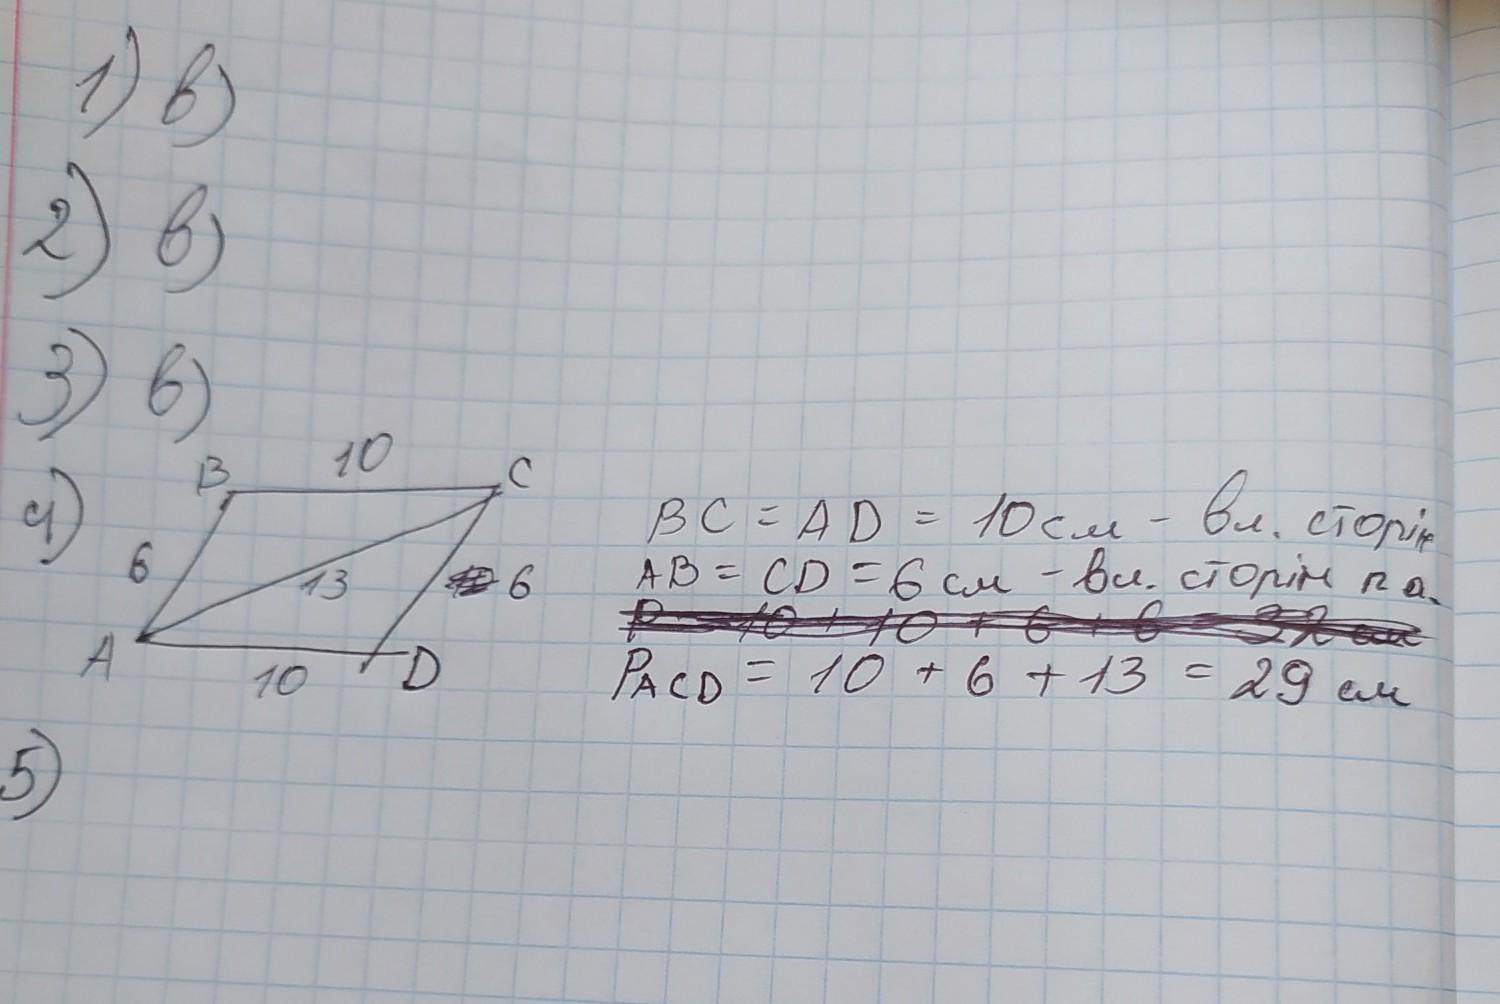 1) в)
2) в)
3) в)
4)
B 10 C
6 13 6
A 10 D
BC = AD = 10 см - вл. сторін
AB = CD = 6 см - вл. сторін п а.
P = 10 + 10 + 6 + 6 = 32 см
PACD = 10 + 6 + 13 = 29 см
5)